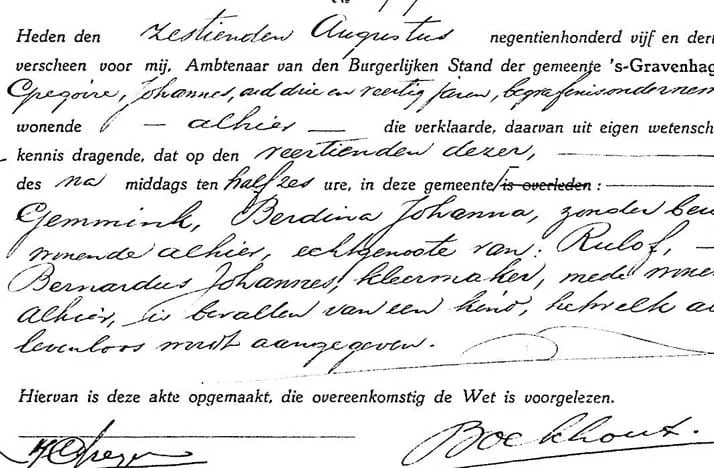 Heden den zestienden Augustus negentienhonderd vijf en dert
verscheen voor mij, Ambtenaar van den Burgerlijken Stand der gemeente 's-Gravenhag
Gregoire, Johannes, oud drie en veertig jaren, begrafenisondernem
wonende — alhier — die verklaarde, daarvan uit eigen wetensch
kennis dragende, dat op den veertienden dezer,
des na middags ten half zes ure, in deze gemeente is overleden :
Gemmink, Berdina Johanna, zonder ber
wonende alhier, echtgenoote van: Rulof, -
Bernardus Johannes, kleermaker, mede wone
alhier, is bevallen van een kind, hetwelk a
levenloos wordt aangegeven.
Hiervan is deze akte opgemaakt, die overeenkomstig de Wet is voorgelezen.
Boekhout.